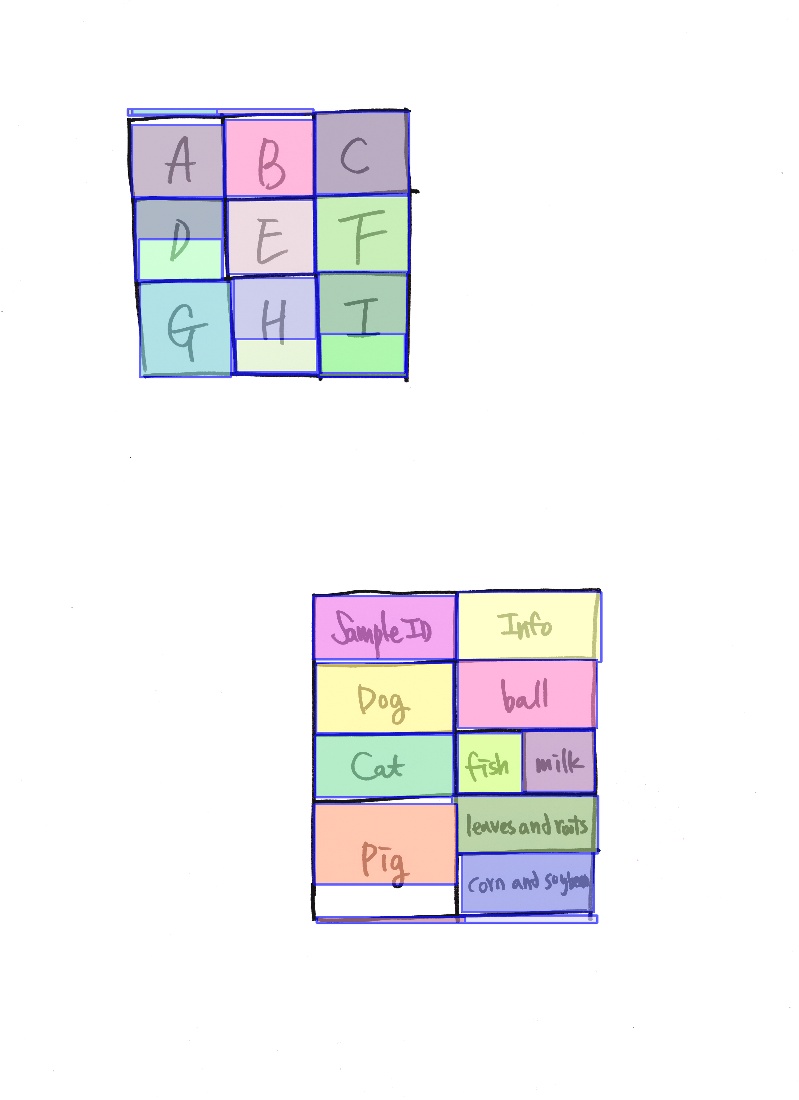 A B C
D E F
G H I
Sample ID Info
Dog ball
Cat fish milk
leaves and roots
Pig
corn and soybean